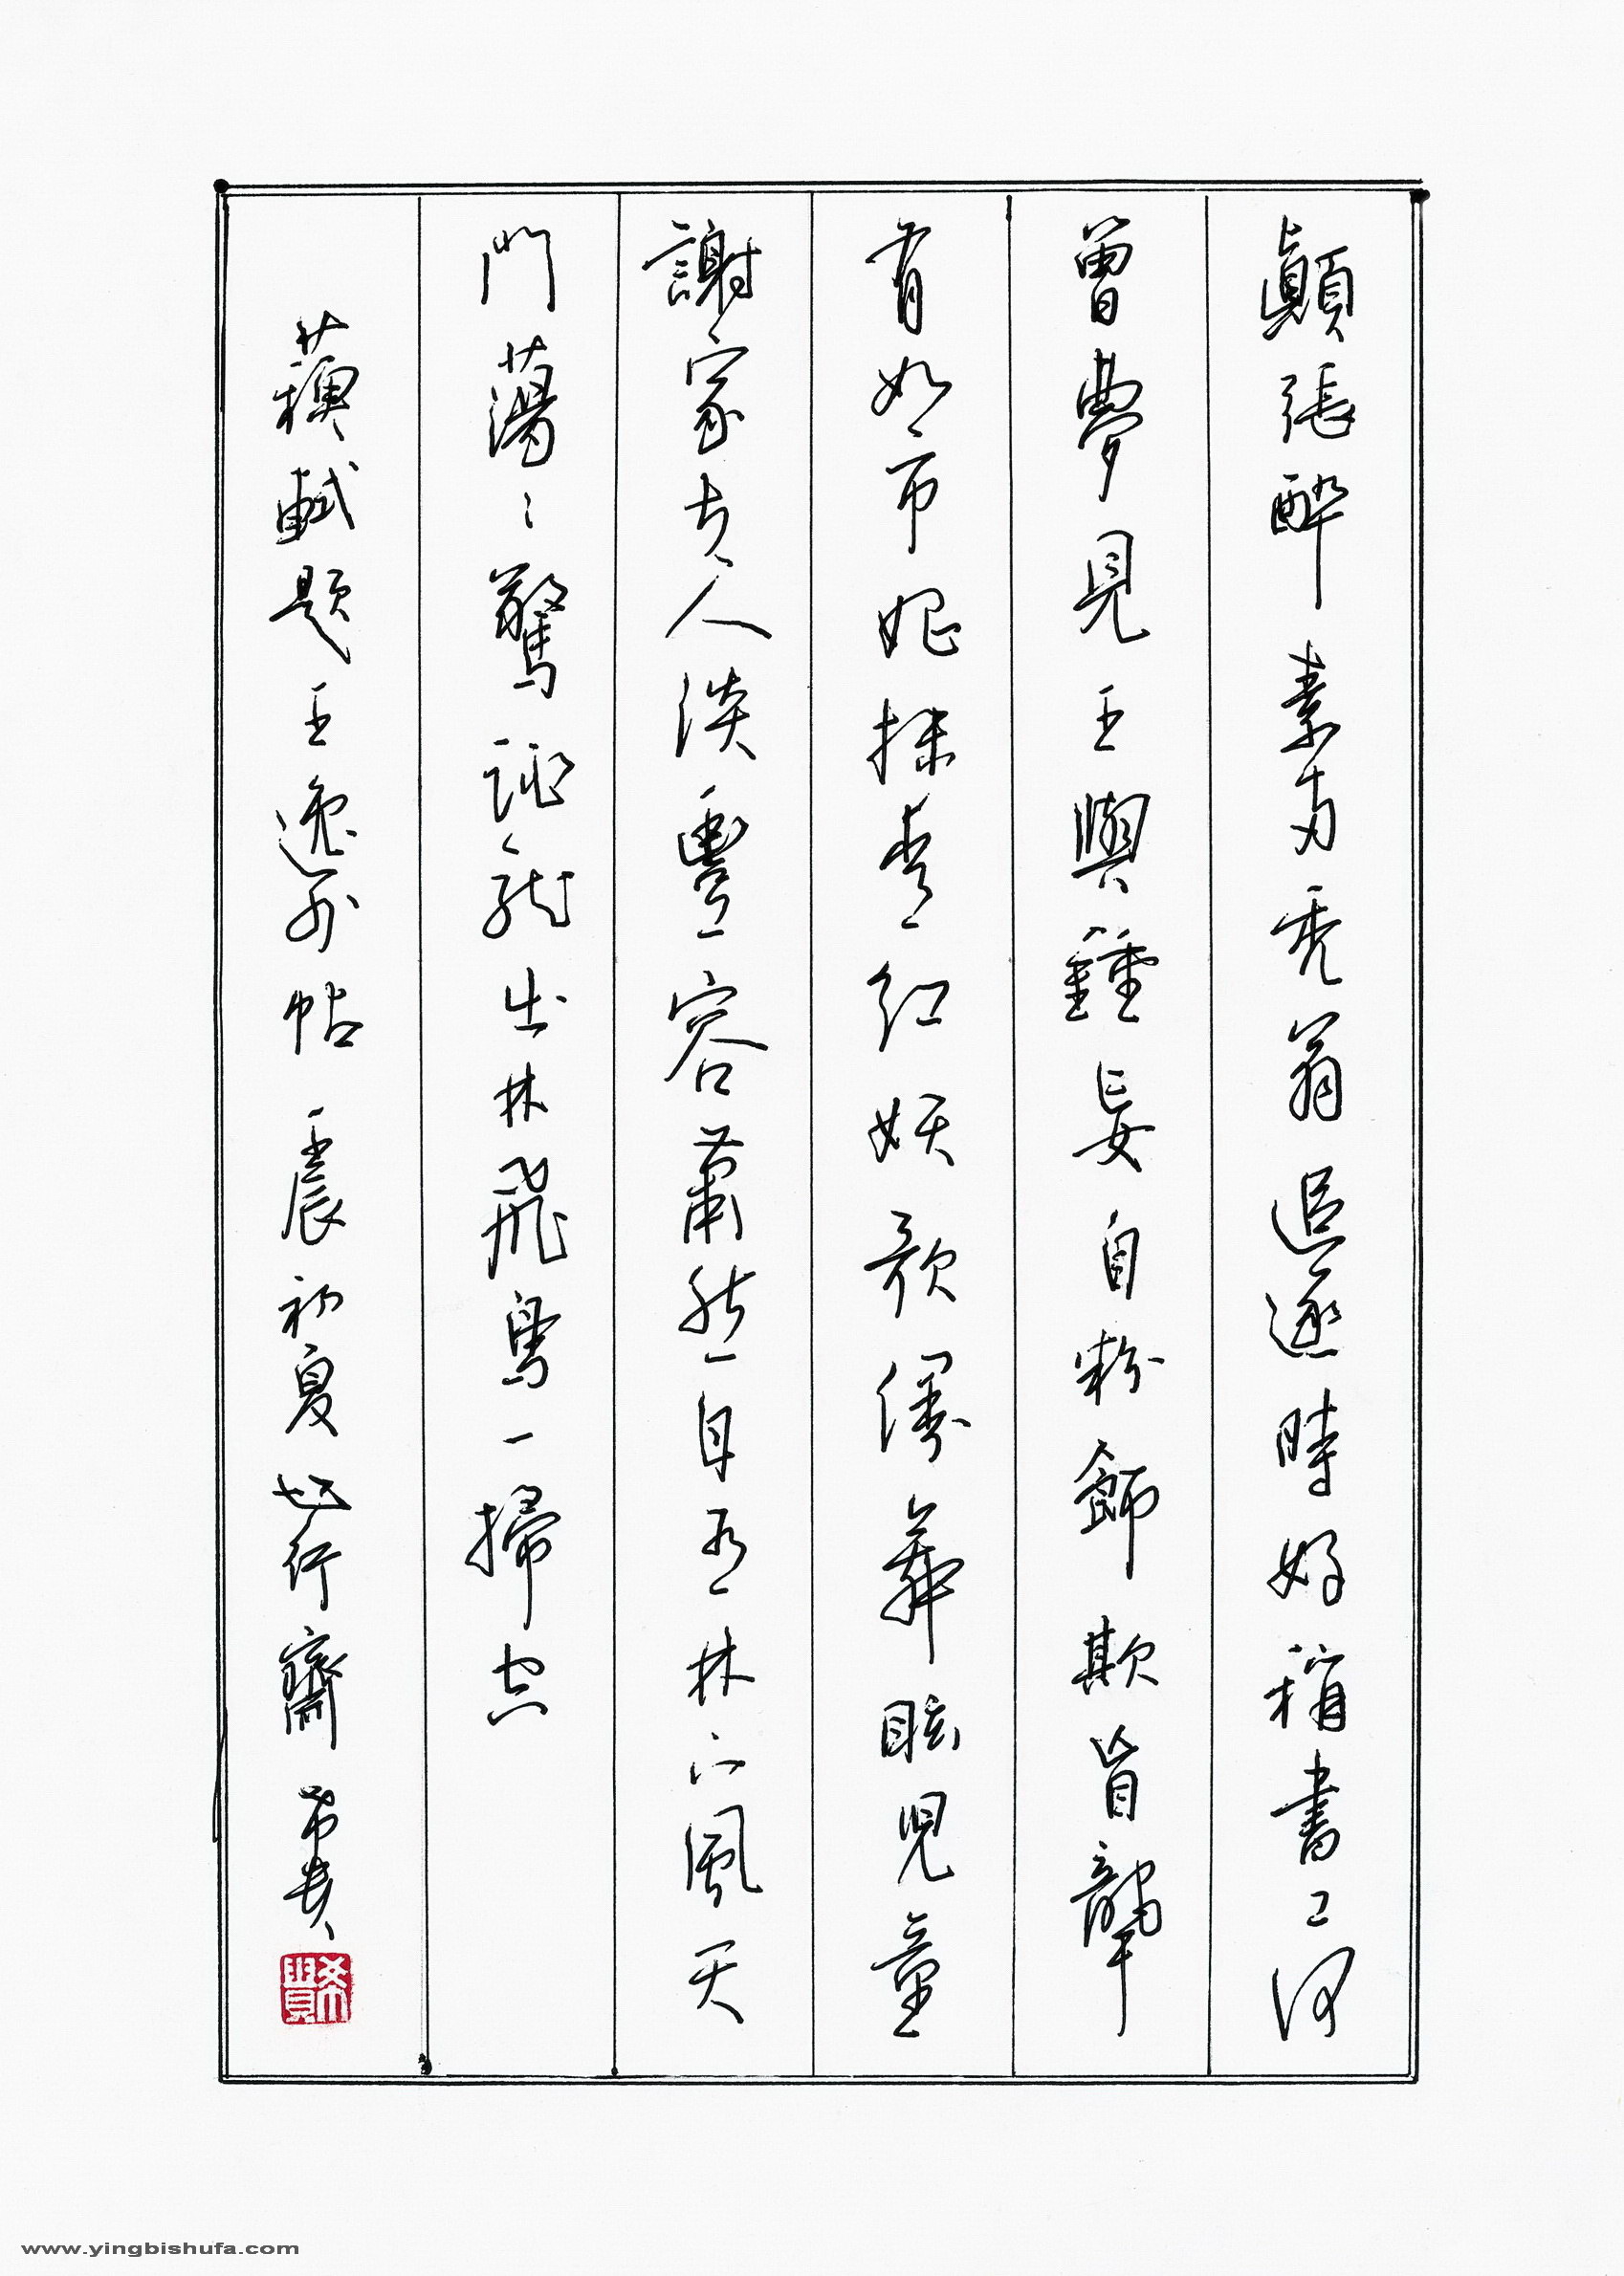 顛張醉素兩禿翁追逐時好稱書工何
曾夢見王與鍾妄自粉飾欺盲聾
有如市娼抹青紅妖歌僈舞眩兒童
謝家夫人淡豐容蕭然自有林下風天
門蕩々驚跳龍出林飛鳥一掃空
蘇軾題王逸少帖 壬辰初夏 也行齋 希賢
希賢
www.yingbishufa.com